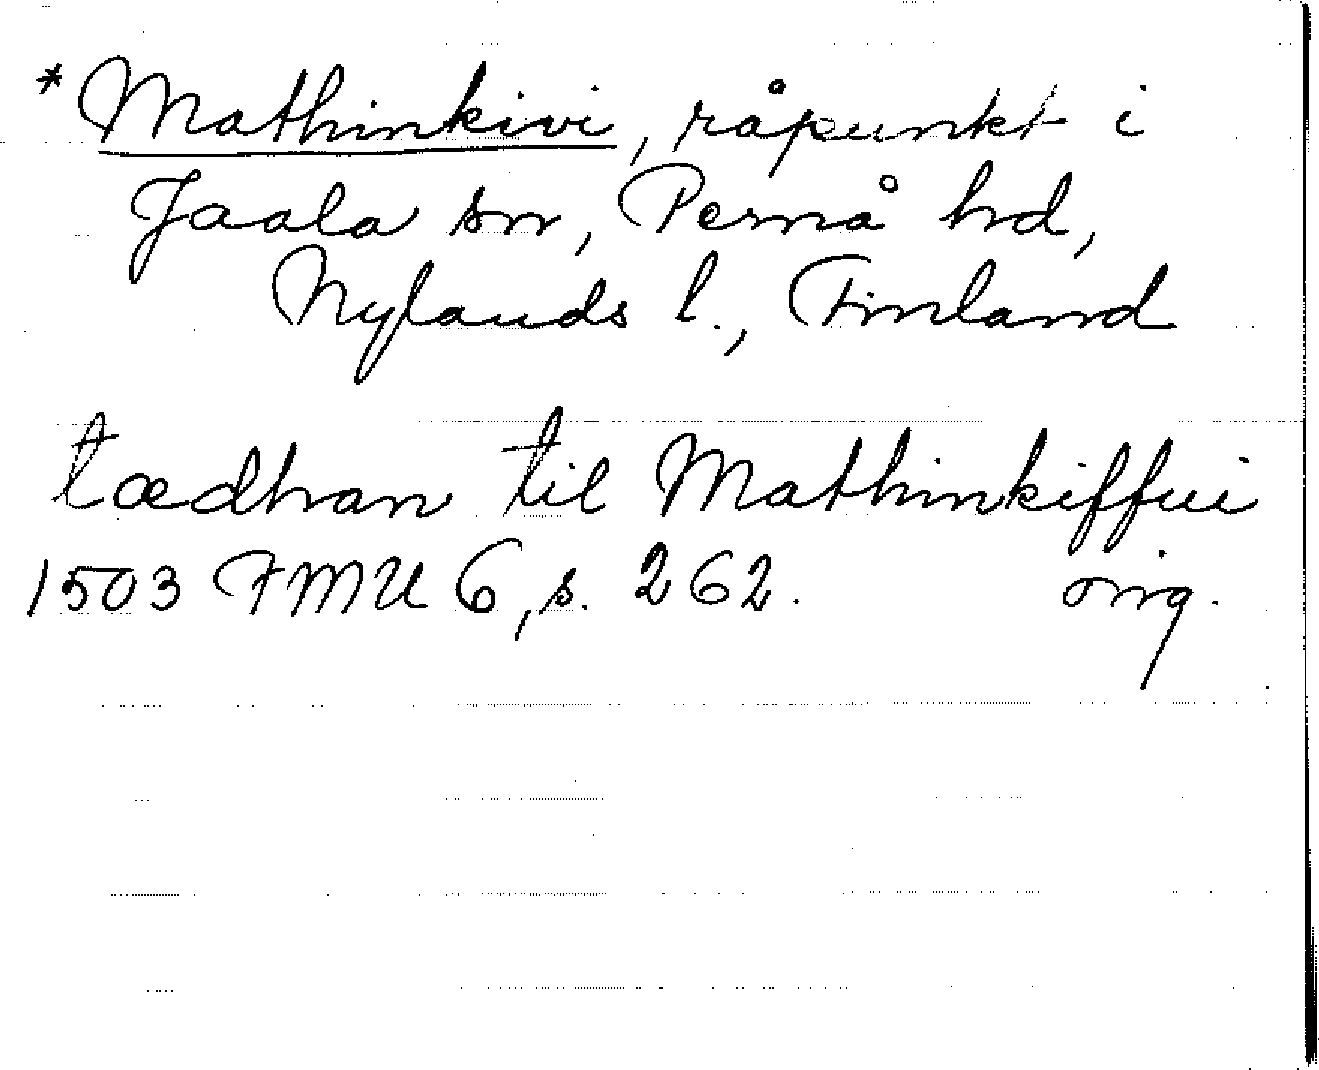 *Mathinkivi, råpunkt i
Jaala sn, Pernå hd,
Nylands l., Finland
tædhan til Mathinkiffui
1503 FMU 6, s. 262. orig.